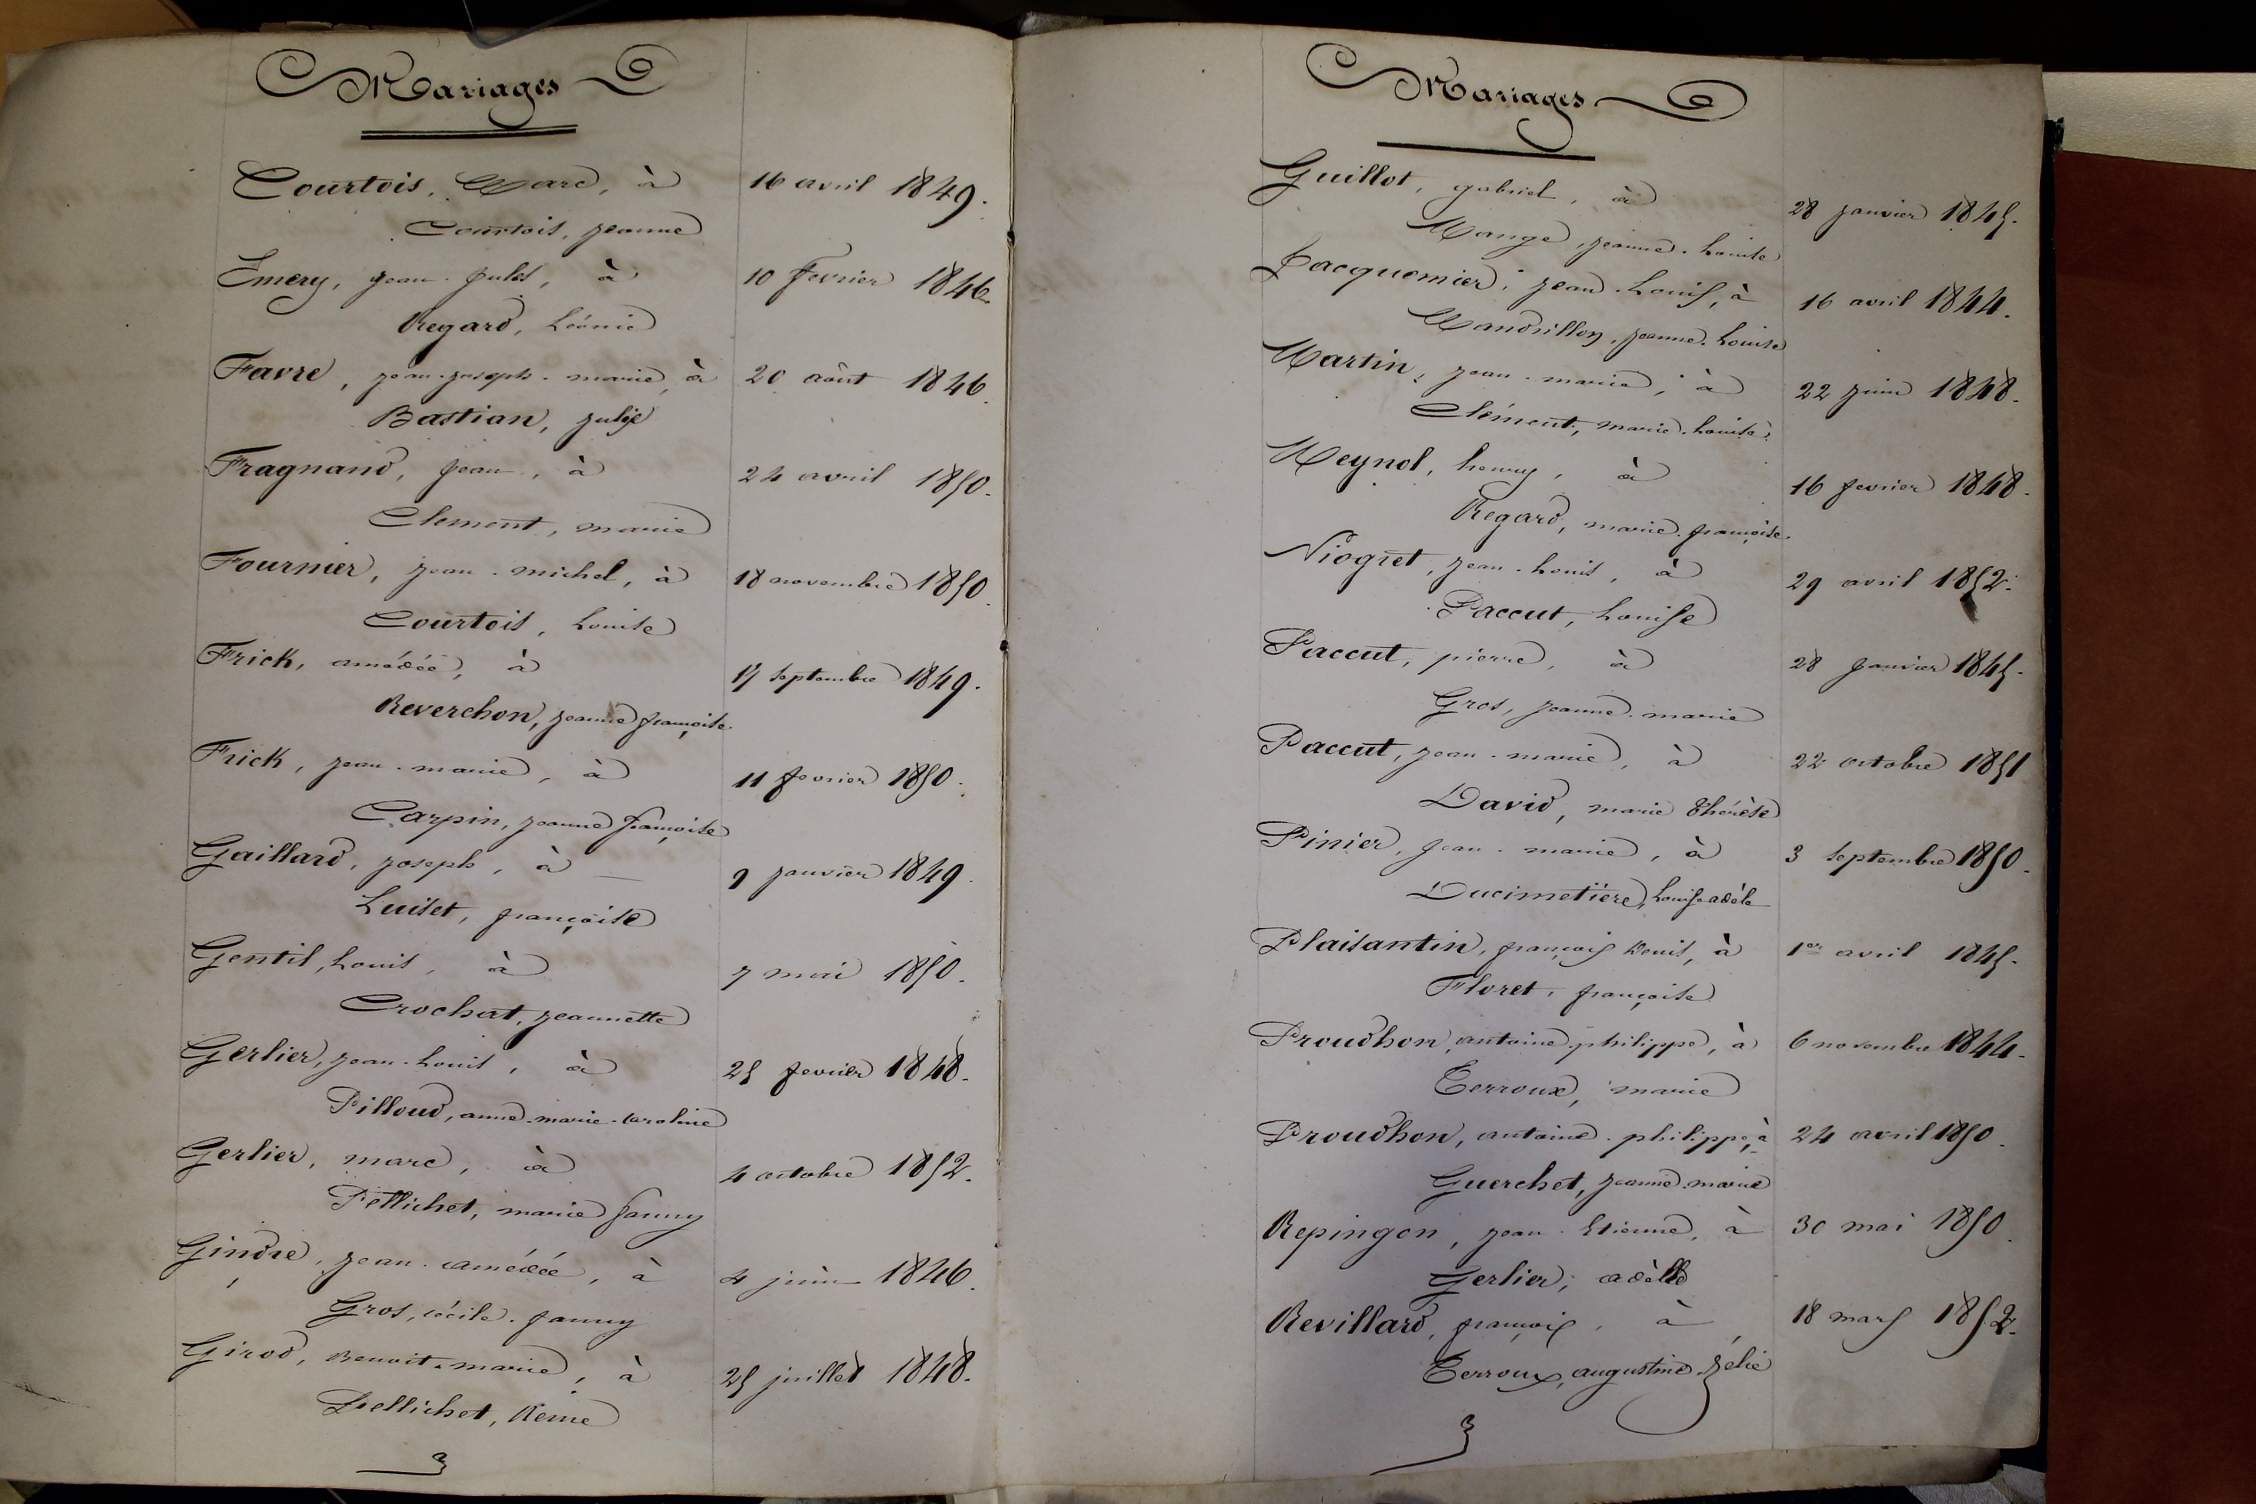 Mariages
Courtois, Marc, à 16 avril 1849.
Courtois, jeanne
Emery, jean-jules, à 10 fevrier 1846
Regard, Léonie
Favre, jean-joseph-marie, à 20 août 1846.
Bastian, julie
Fragnand, jean, à 24 avril 1850.
Clement, marie
Fournier, jean-michel, à 18 novembre 1850.
Courtois, Louise
Frick, amédéé, à 17 septembre 1849.
Reverchon, jeanne françoise
Frick, jean-marie, à 11 fevrier 1850.
Carpin, jeanne françoise
Gaillard, joseph, à 9 janvier 1849.
Luiset, françoise
Gentil, Louis, à 7 mai 1850.
Crochat, jeannette
Gerlier, jean-Louis, à 25 fevrier 1848.
Pilloud, anne-marie-caroline
Gerlier, marc, à 4 octobre 1852.
Pellichet, marie fanny
Gindre, jean-amédéé, à 4 juin 1846.
Gros, cécile-fanny
Girod, Benoit-marie, à 25 juillet 1848.
Pellichet, Reine
Mariages
Guillot, gabriel, à 28 janvier 1845.
Mange, jeanne-Louise
Jacquemier, jean-Louis, à 16 avril 1844.
Mandrillon, jeanne-Louise
Martin, jean-marie, à 22 juin 1848.
Clément, marie-Louise
Meynol, henry, à 16 fevrier 1848.
Regard, marie-françoise
Niogret, jean-Louis, à 29 avril 1852.
Paccut, Louise
Paccut, pierre, à 28 janvier 1845.
Gros, jeanne-marie
Paccut, jean-marie, à 22 octobre 1851
David, marie Thérèse
Pinier, jean-marie, à 3 septembre 1850.
Ducimetière, Louise adèle
Plaisantin, françois Denis, à 1er avril 1845.
Floret, françoise
Proudhon, antoine-philippe, à 6 novembre 1844.
Terroux, marie
Proudhon, antoine-philippe, à 24 avril 1850.
Guerchet, jeanne-marie
Repingon, jean-Etienne, à 30 mai 1850.
Gerlier, adèlle
Revillard, françois, à 18 mars 1852.
Terroux, augustine-zélie